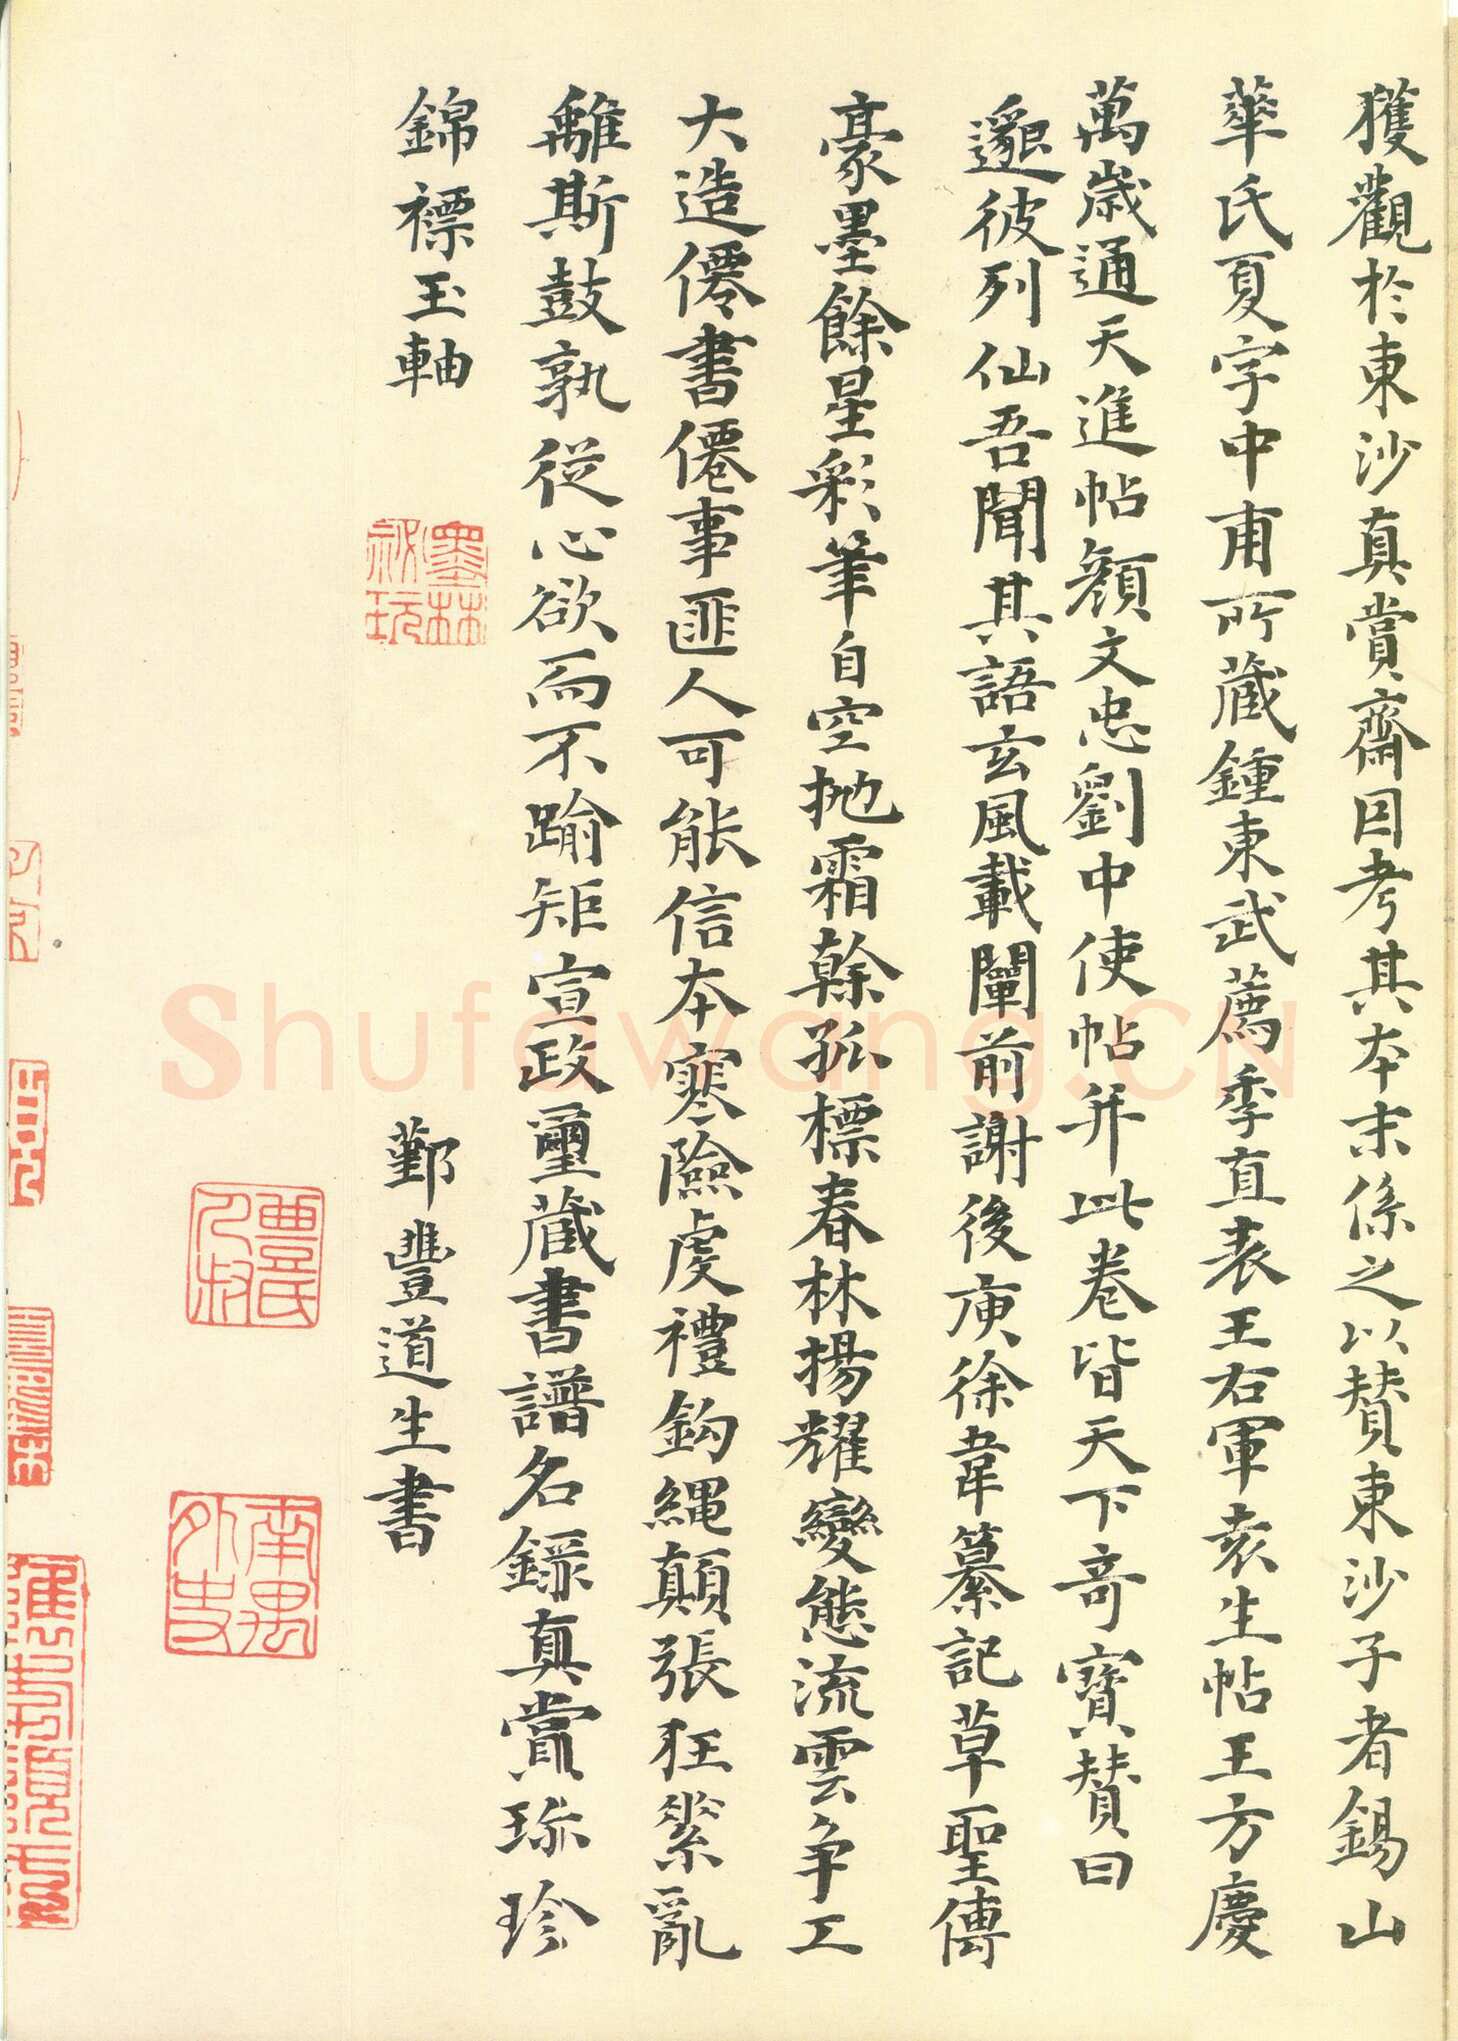 獲觀於東沙真賞齋因考其本末係之以贊東沙子者錫山
華氏夏字中甫所藏鍾東武薦季直表王右軍袁生帖王方慶
萬歲通天進帖顏文忠劉中使帖并此卷皆天下奇寶贊曰
邈彼列仙吾聞其語玄風載闡前謝後庾徐韋纂記草聖傳
豪墨餘星彩筆自空拋霜幹孤標春林揚耀變態流雲爭工
大造僊書僊事匪人可能信本寒險虔禮鈎繩顛張狂縈亂
離斯鼓孰從心欲而不踰矩宣政璽藏書譜名錄真賞珎珍
錦褾玉軸
鄞豐道生書
墨林祕玩
豐氏人叔
南禺外史
Shufawang.CN